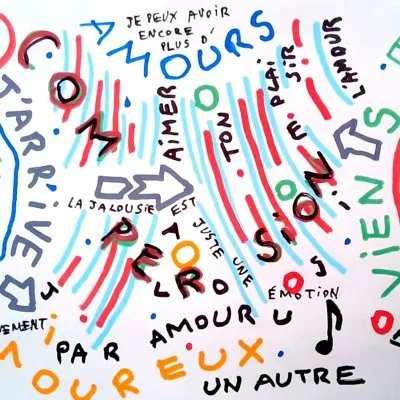 JE PEUX AVOIR
ENCORE
PLUS D'
AMOURS
COM
PER
SION
J'ARRIVE
AIMER
TON
PLAISIR
L'AMOUR
VIENS
LA JALOUSIE EST
JUSTE UNE
ÉMOTION
PAR
AMOUR
UN AUTRE